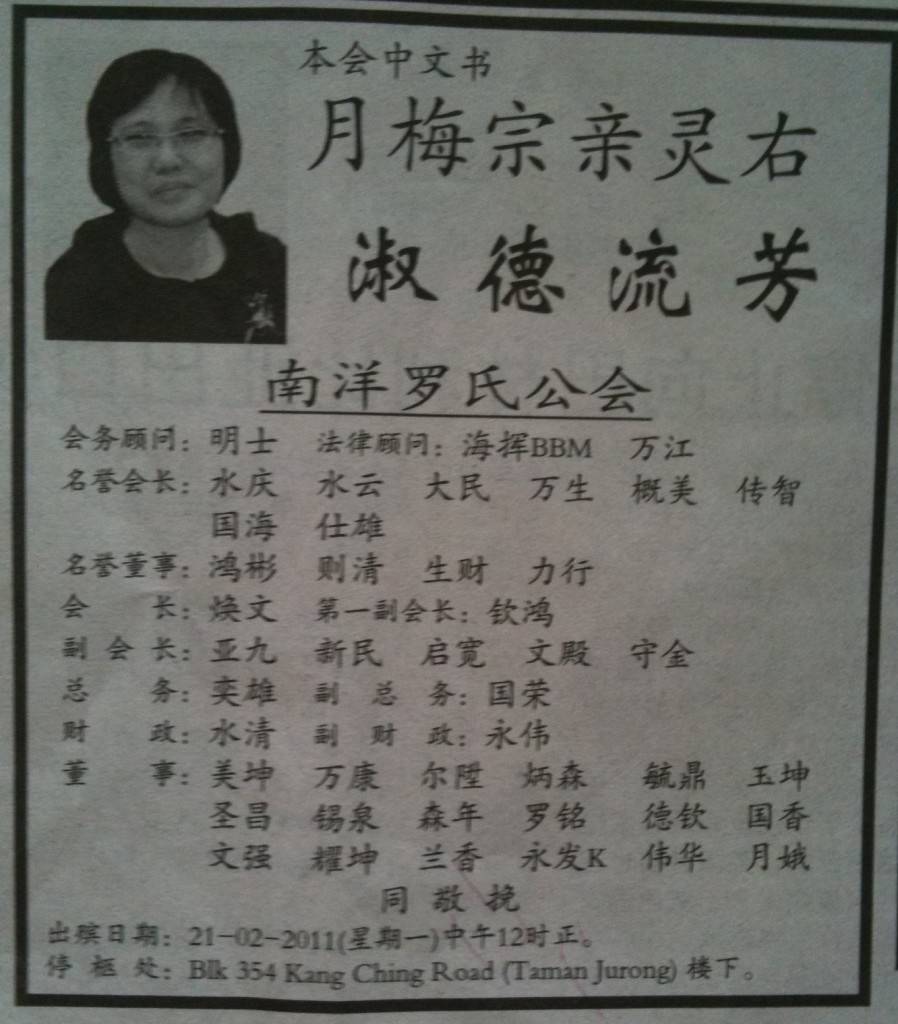 本会中文书
月梅宗亲灵右
淑德流芳
南洋罗氏公会
会务顾问：明士 法律顾问：海挥BBM 万江
名誉会长：水庆 水云 大民 万生 概美 传智
国海 仕雄
名誉董事：鸿彬 则清 生财 力行
会 长：焕文 第一副会长：钦鸿
副会长：亚九 新民 启宽 文殿 守金
总 务：奕雄 副总务：国荣
财 政：水清 副财政：永伟
董 事：美坤 万康 尔陞 炳森 毓鼎 玉坤
圣昌 锡泉 森年 罗铭 德钦 国香
文强 耀坤 兰香 永发K 伟华 月娥
同敬挽
出殡日期：21-02-2011(星期一)中午12时正。
停柩处：Blk 354 Kang Ching Road (Taman Jurong) 楼下。